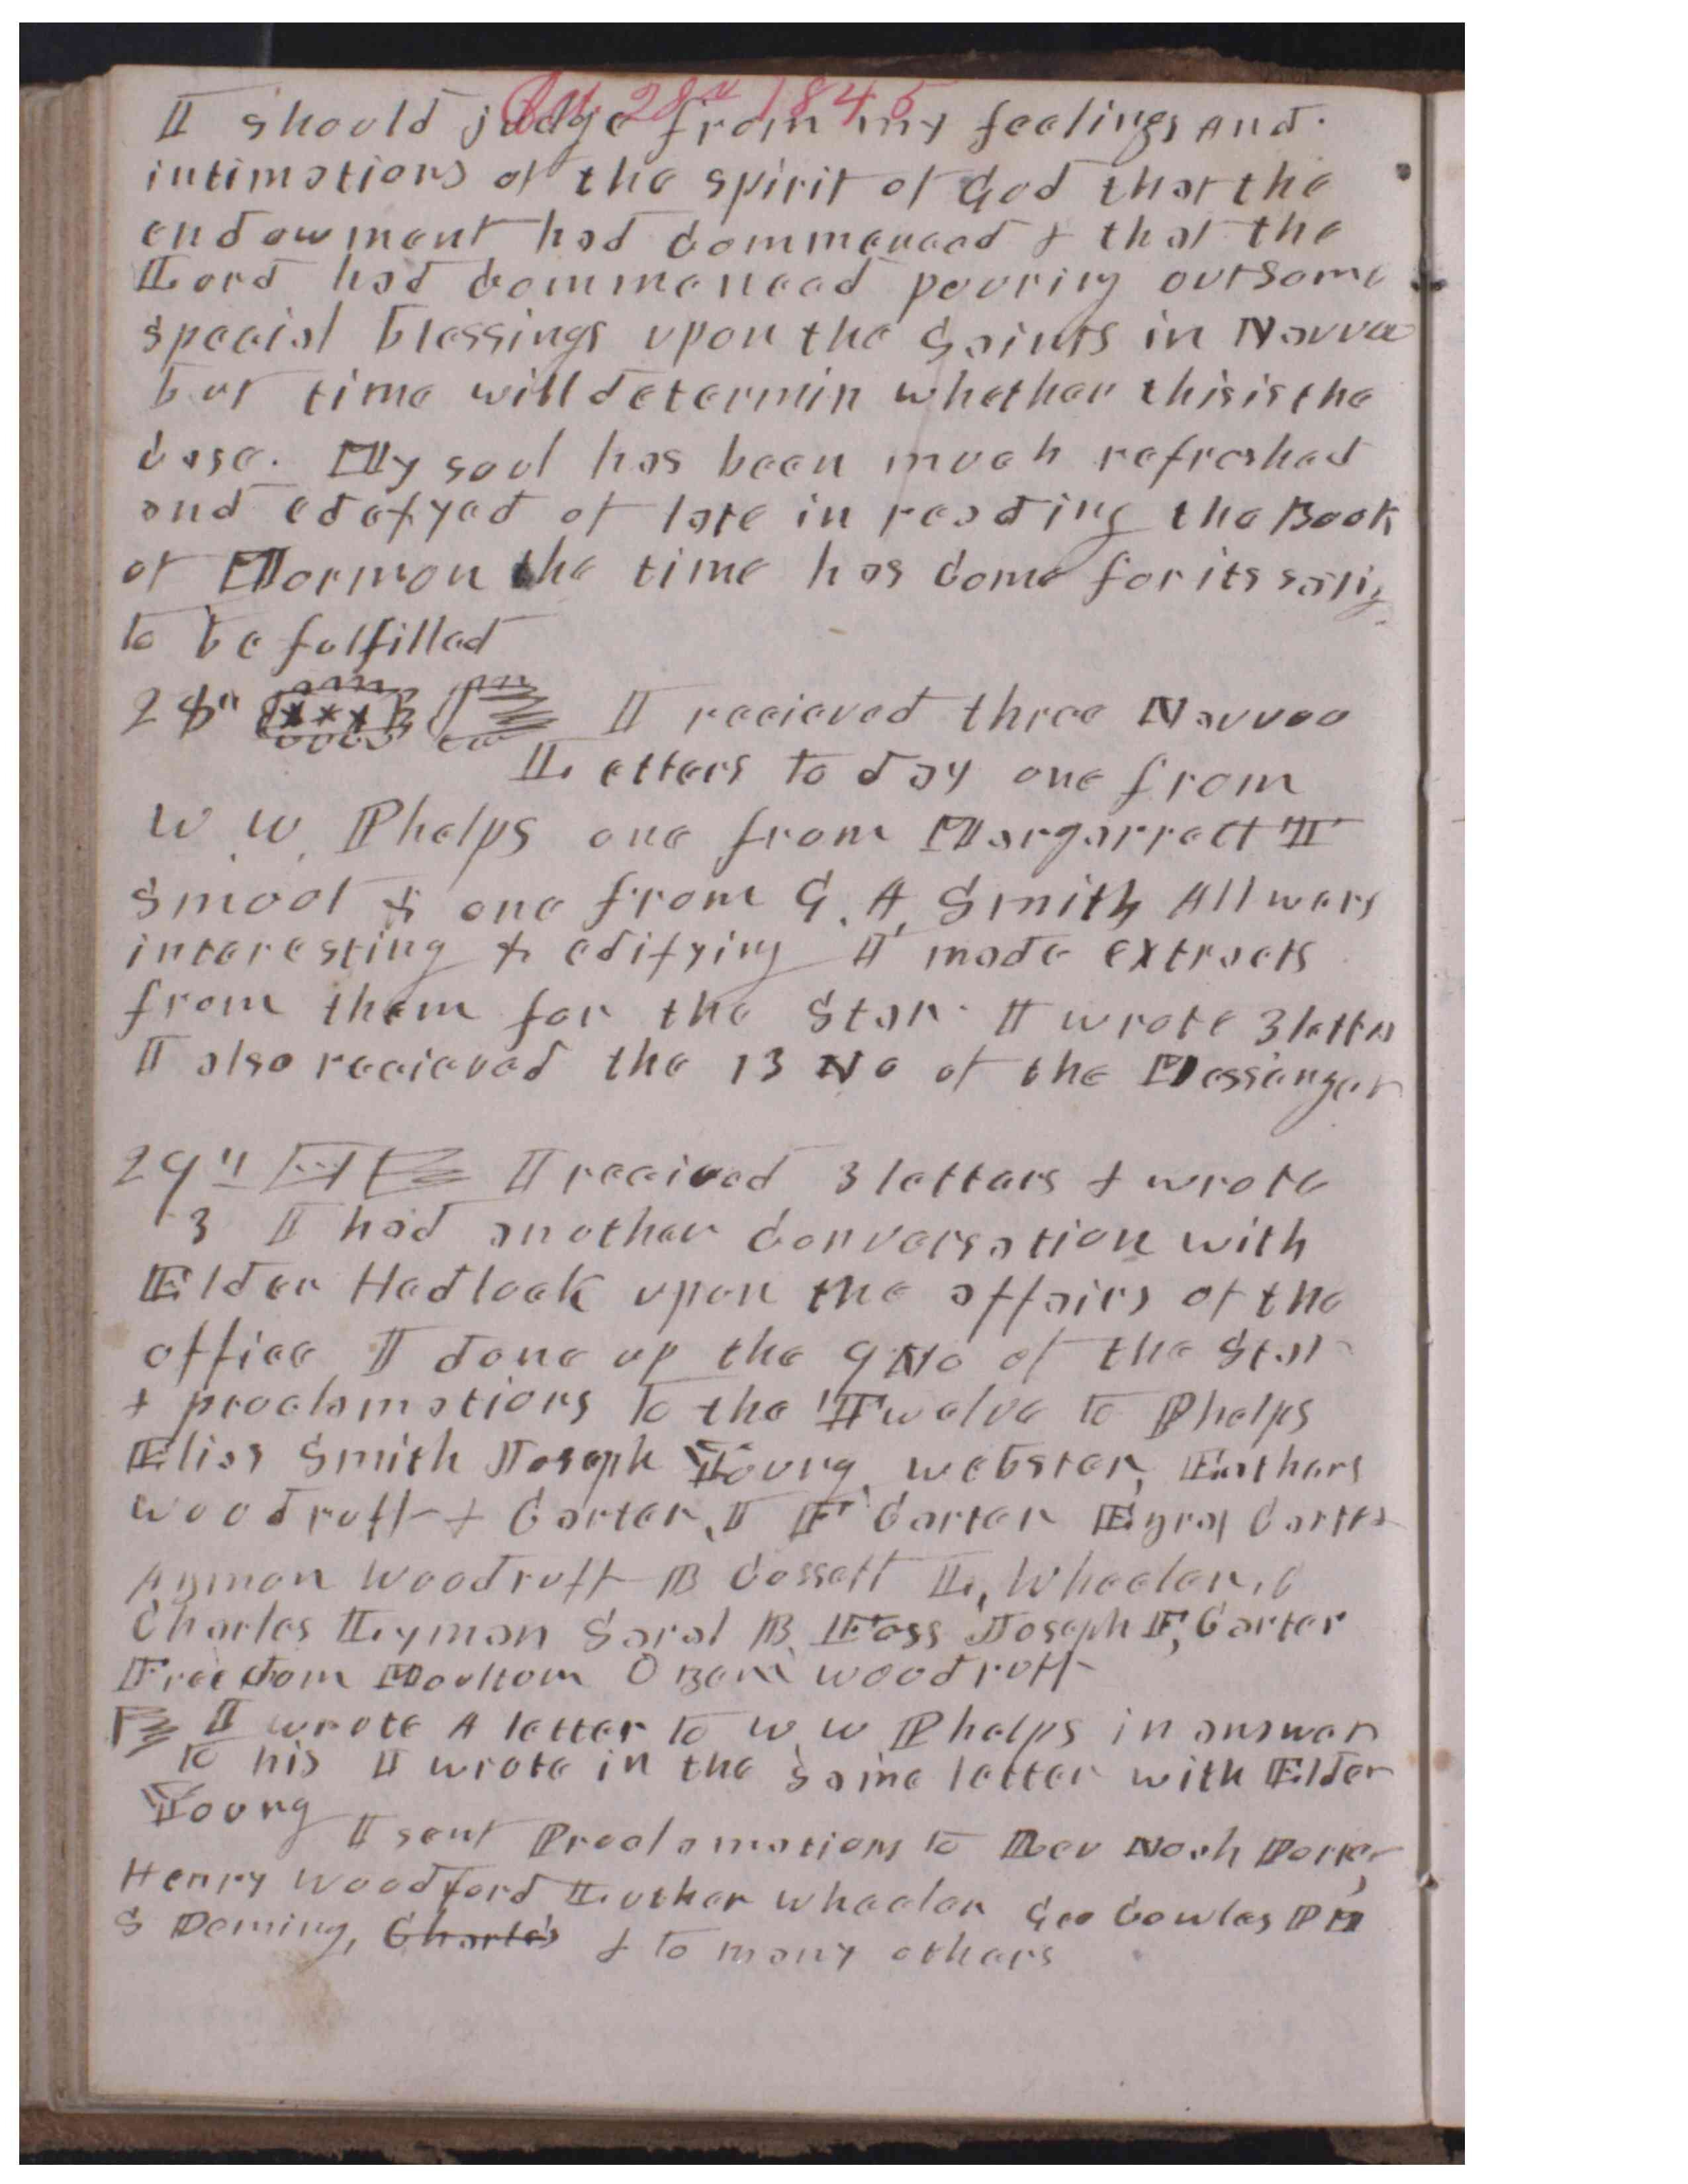 Oct 28th 1845
I should judge from my feelings and
intimations of the spirit of God that the
endowment had commenced & that the
Lord had commenced pouring out some
special blessings upon the Saints in Nauvoo
but time will determin whether this is the
case. My soul has been much refreshed
and edefyed of late in reading the Book
of Mormon the time has come for its saying
to be fulfilled
28th I recieved three Nauvoo
Letters to day one from
W. W. Phelps one from Margarrett T
Smoot & one from G. A. Smith All wars
interesting & edifying I made extracts
from them for the Star. I wrote 3 letters
I also recieved the 13 No of the Messenger
29th I recieved 3 letters & wrote
3 I had another conversation with
Elder Hedlock upon the affairs of the
office I done up the 9 No of the Star
& proclamations to the Twelve to Phelps
Elias Smith Joseph Young, Webster, Fathers
Woodruff & Carter, I F Carter Ezra Carter
Azmon Woodruff B Cossett L, Wheeler,
Charles Lyman Sarah B. Foss Joseph F, Carter
Freedom Moultom Ozem Woodruff
I wrote A letter to W W Phelps in answer
to his I wrote in the same letter with Elder
Young
I sent Proclamations to Rev Noah Porter,
Henry Woodford Luther Wheeler Geo Cowles P M
S Deming, Charles & to many others